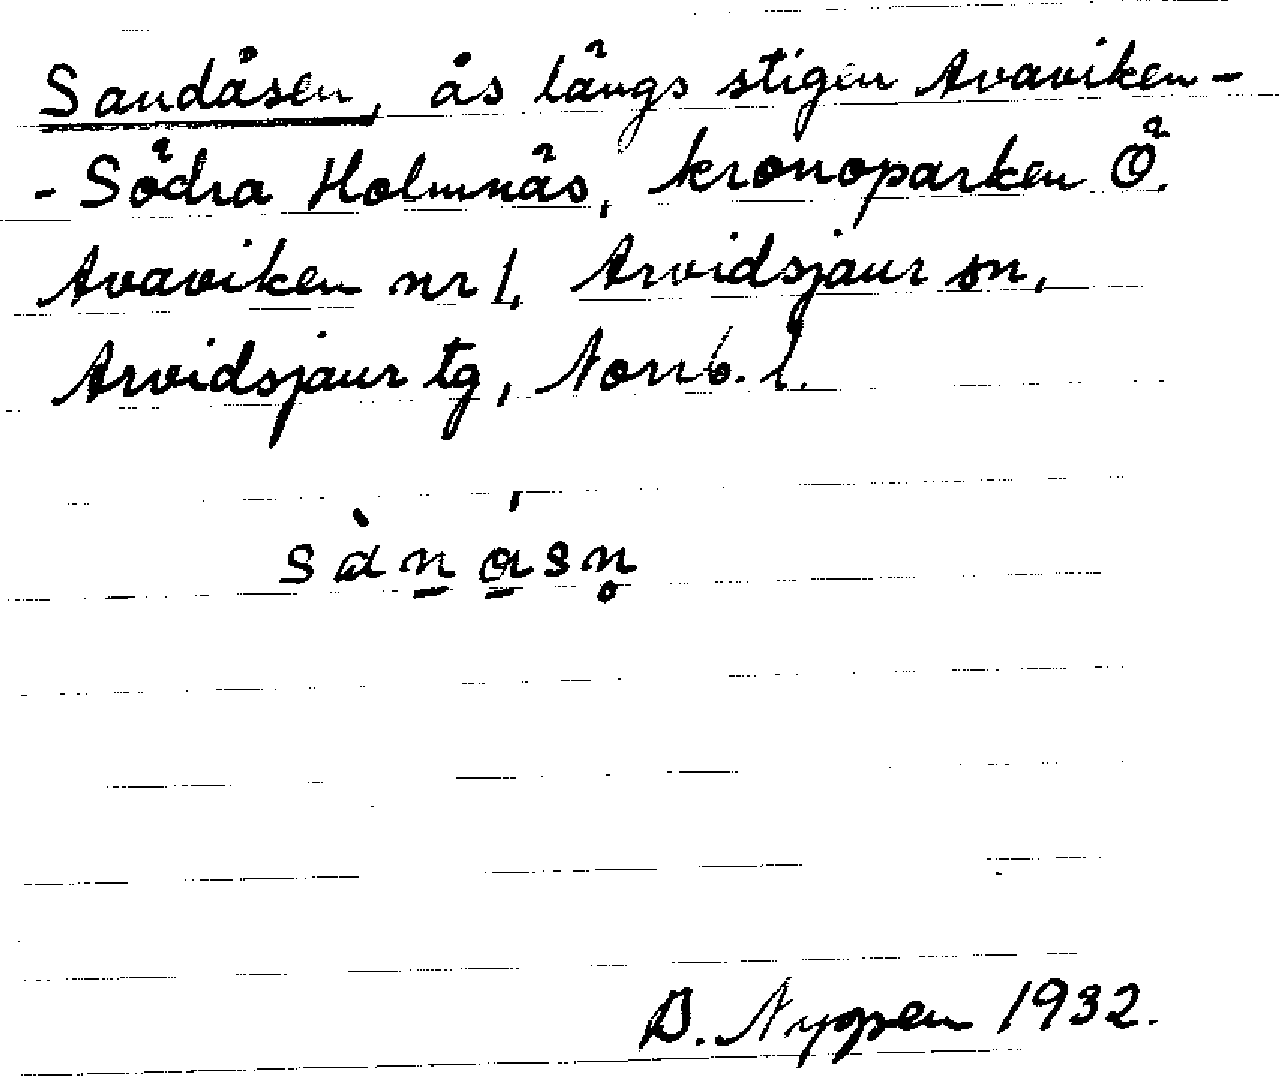 Sandåsen, ås längs stigen Avaviken-
- Södra Holmnäs, kronoparken Ö.
Avaviken nr 1, Arvidsjaur sn,
Arvidsjaur tg, Norrb. l.
sàn̲ɑ̲́sn̥
1932.